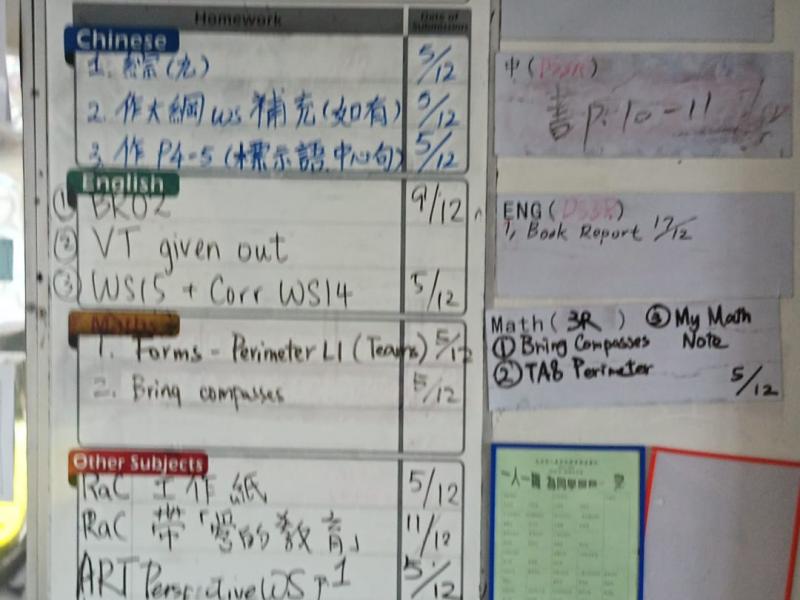 Homework Date of Submission
Chinese
1. 綜(九) 5/12
2. 作大綱 ws 補充(如有) 5/12
3. 作 P4-5 (標示語,中心句) 5/12
English
① BR02 9/12
② VT given out
③ WS15 + Corr WS14 5/12
Maths
1. Forms - Perimeter L1 (Teams) 5/12
2. Bring compasses 5/12
Other Subjects
RaC 工作紙 5/12
RaC 帶「愛的教育」 11/12
ART Perspective WS P1 5/12
中( )
書 p.10-11
ENG( )
1, Book Report 17/12
Math( 3R ) ③ My Math Note
① Bring Compasses
② TAB Perimeter
5/12
一人一職